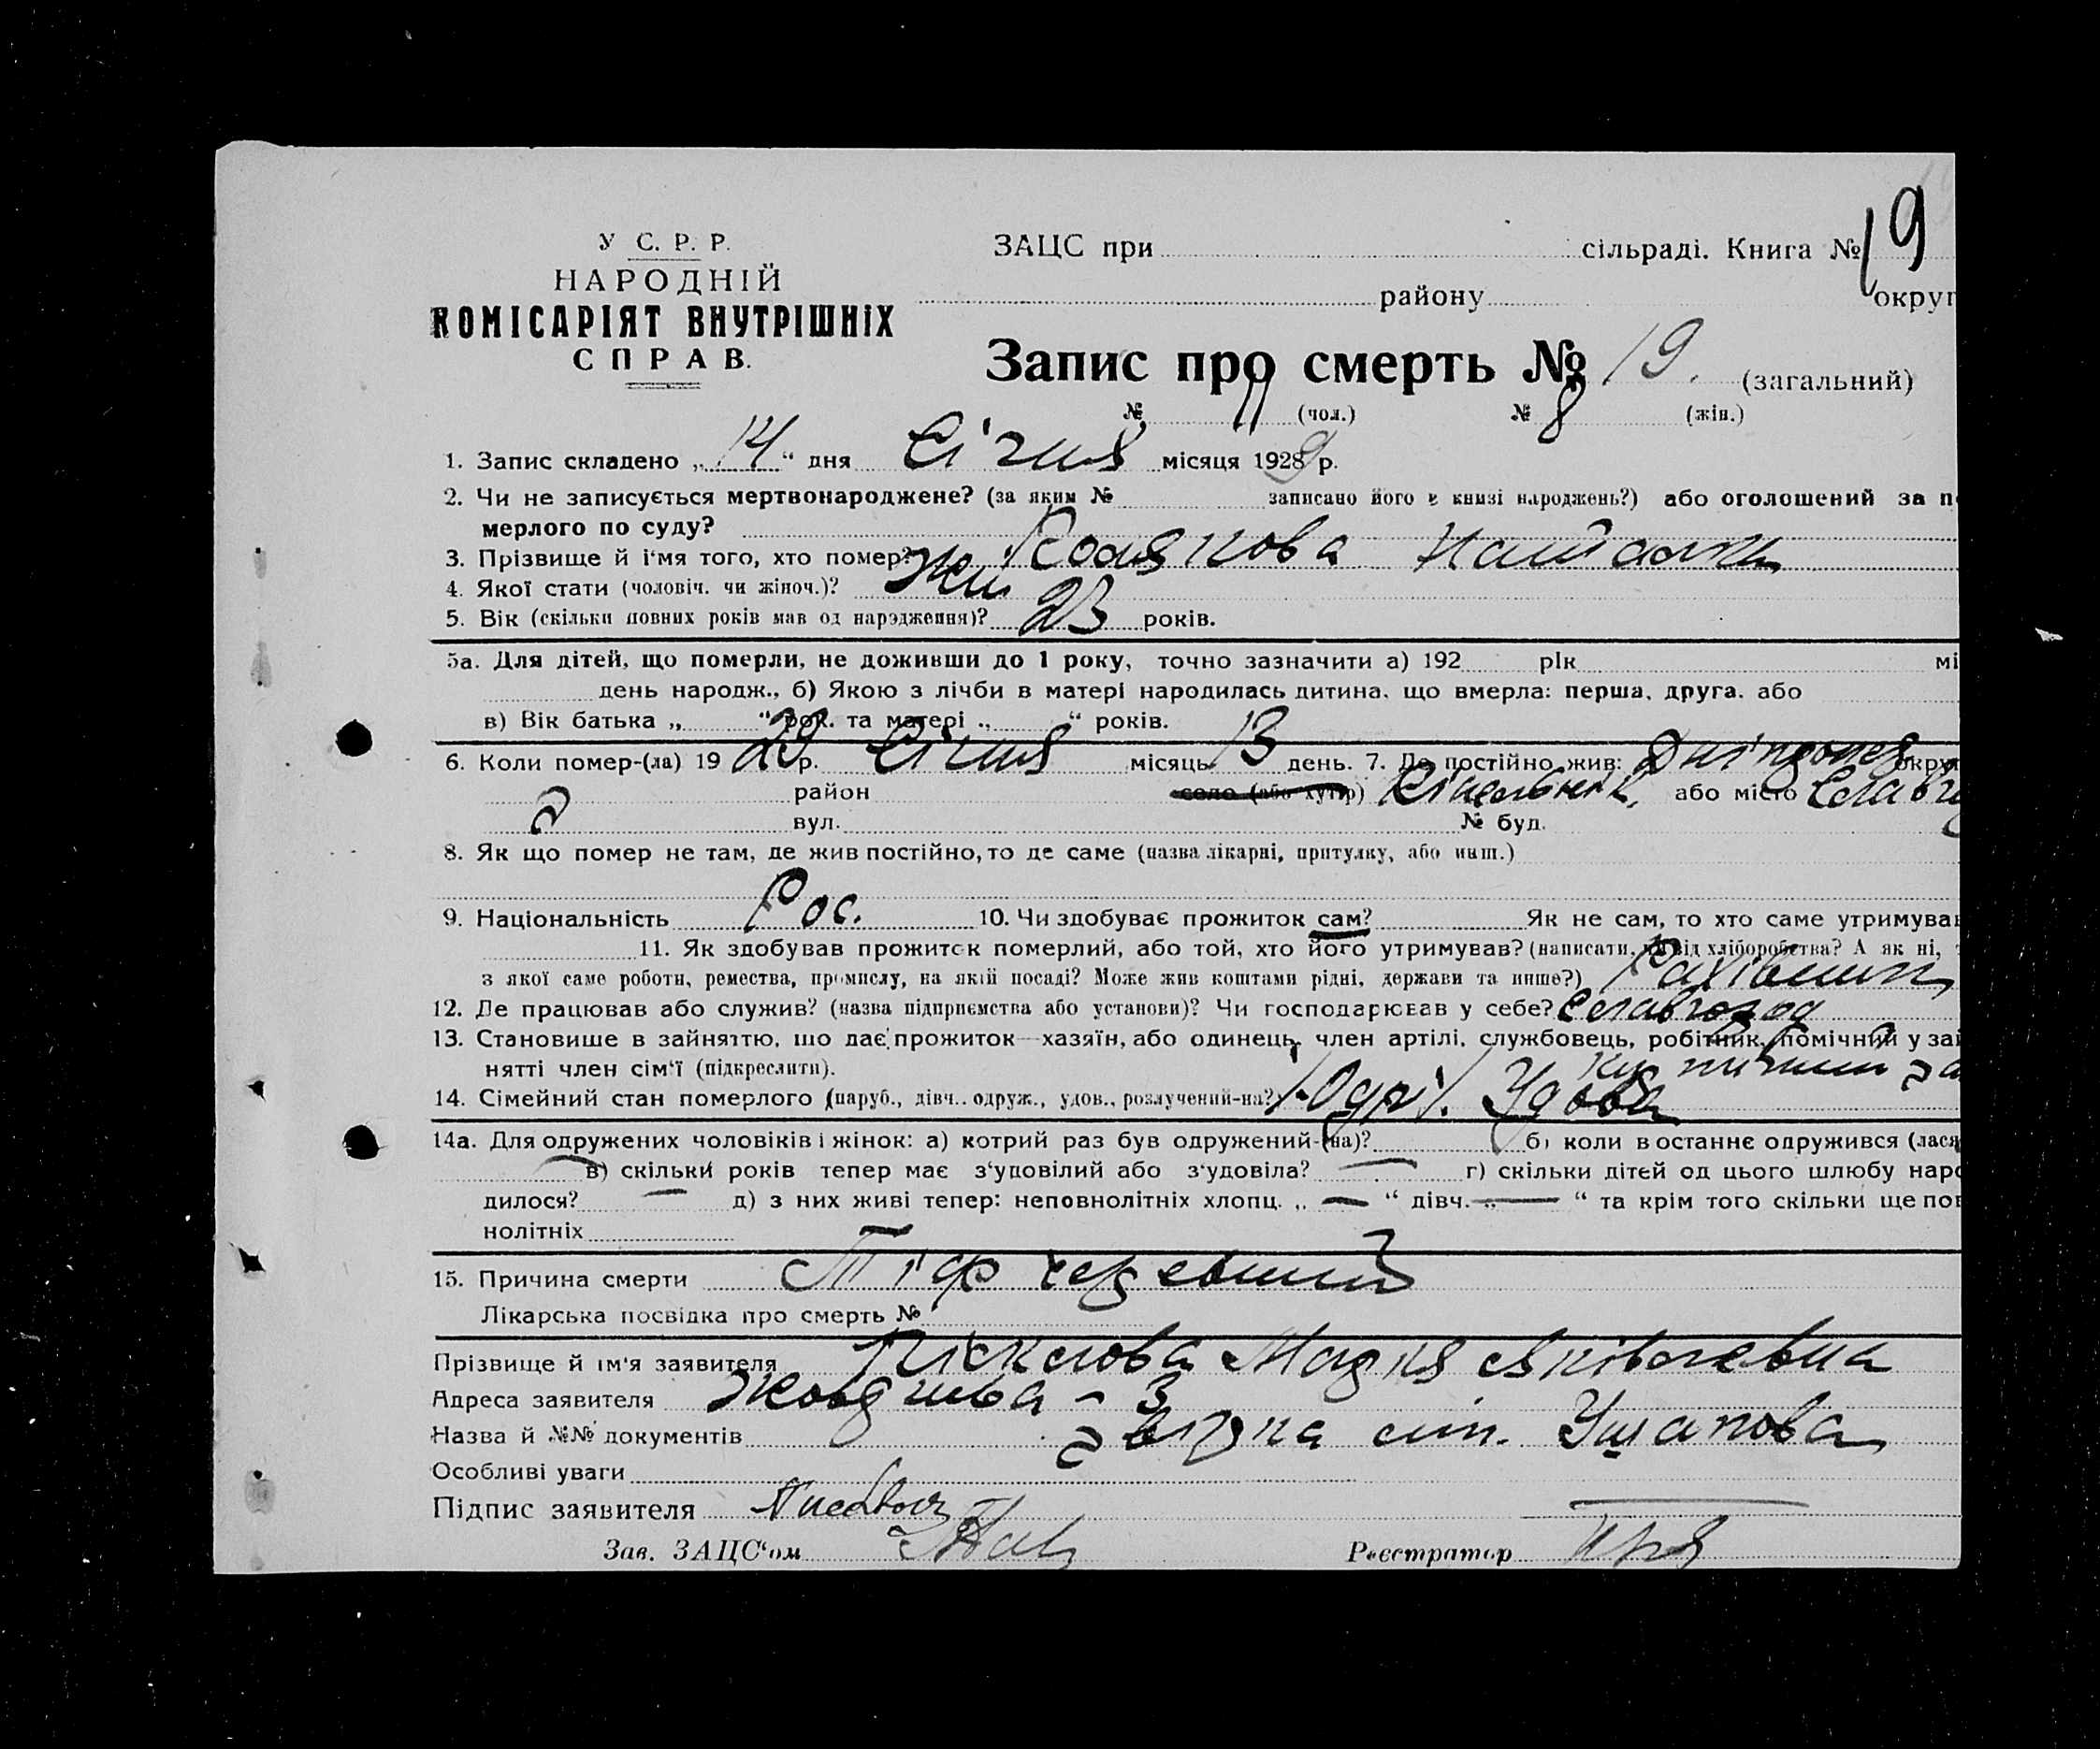 19
У С. Р. Р.
НАРОДНІЙ
КОМІСАРІЯТ ВНУТРІШНІХ
СПРАВ.
ЗАЦС при сільраді. Книга №
району округ
Запис про смерть № 19. (загальний)
№ 11 (чол.) № 8 (жін.)
1. Запис складено „14“ дня Січня місяця 1929 р.
2. Чи не записується мертвонароджене? (за яким № записано його в книзі народжень?) або оголошений за п
мерлого по суду?
3. Прізвище й ім‘я того, хто помер?
4. Якої стати (чоловіч. чи жіноч.)? Жін
5. Вік (скільки повних років мав од народження)? 23 років.
5а. Для дітей, що померли, не доживши до 1 року, точно зазначити а) 192 рік мі
день народж., б) Якою з лічби в матері народилась дитина, що вмерла: перша, друга, або
в) Вік батька „ “ рок. та матері „ “ років.
6. Коли помер-(ла) 19 29 р. Січня місяць 13 день. 7. Де постійно жив: округ
район село (або хутір) або місто Славг
вул. № буд.
8. Як що помер не там, де жив постійно, то де саме (назва лікарні, притулку, або инш.)
9. Національність Рос. 10. Чи здобуває прожиток сам? Як не сам, то хто саме утримува
11. Як здобував прожиток померлий, або той, хто його утримував? (написати, чи від хліборобства? А як ні,
з якої саме роботи, ремества, промислу, на якій посаді? Може жив коштами рідні, держави та инше?)
12. Де працював або служив? (назва підприємства або установи)? Чи господарював у себе? Славгород
13. Становище в зайняттю, що дає прожиток—хазяїн, або одинець, член артілі, службовець, робітник, помічний у зай
нятті член сім‘ї (підкреслити).
14. Сімейний стан померлого (паруб., дівч.. одруж., удов., розлучений-на? Удова
14а. Для одружених чоловіків і жінок: а) котрий раз був одружений-(на)? б) коли востаннє одружився (лася
в) скільки років тепер має з‘удовілий або з‘удовіла? — г) скільки дітей од цього шлюбу наро
дилося? — д) з них живі тепер: неповнолітніх хлопц. „ — “ дівч. „ — “ та крім того скільки ще пов
нолітніх
15. Причина смерти Тіф черевний
Лікарська посвідка про смерть №
Прізвище й ім'я заявителя Марія Яківлевна
Адреса заявителя
Назва й №№ документів
Особливі уваги
Підпис заявителя
Зав. ЗАЦС‘ом Реєстратор